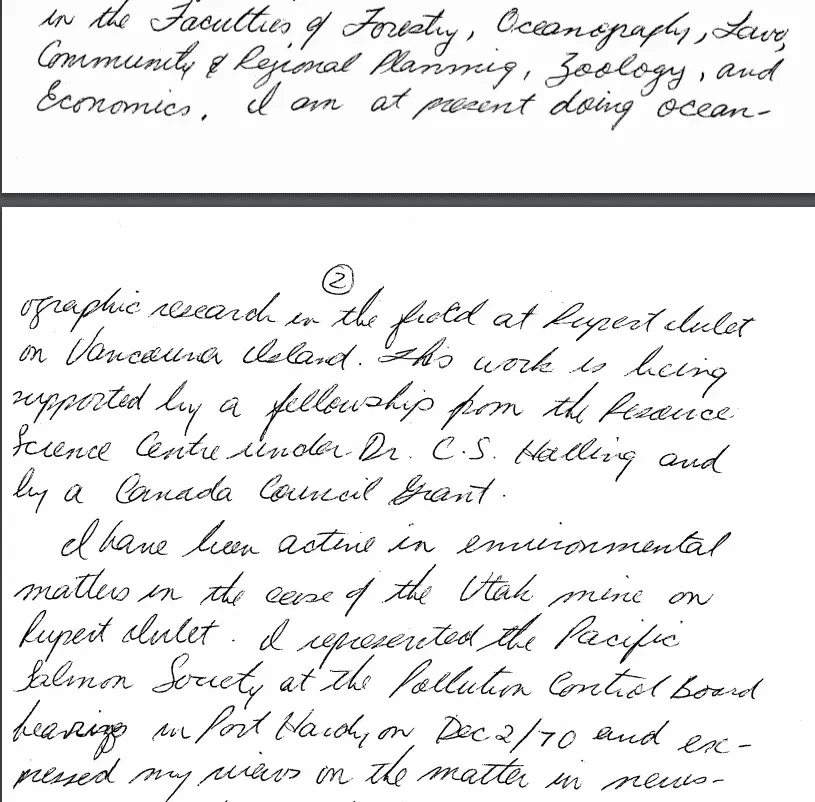 in the Faculties of Forestry, Oceanography, Law,
Community & Regional Planning, Zoology, and
Economics. I am at present doing ocean-
2
ographic research in the field at Rupert Inlet
on Vancouver Island. This work is being
supported by a fellowship from the Resource
Science Centre under Dr. C.S. Holling and
by a Canada Council Grant.
I have been active in environmental
matters in the case of the Utah mine on
Rupert Inlet. I represented the Pacific
Salmon Society at the Pollution Control Board
hearings in Port Hardy, on Dec 2/70 and ex-
pressed my views on the matter in news-